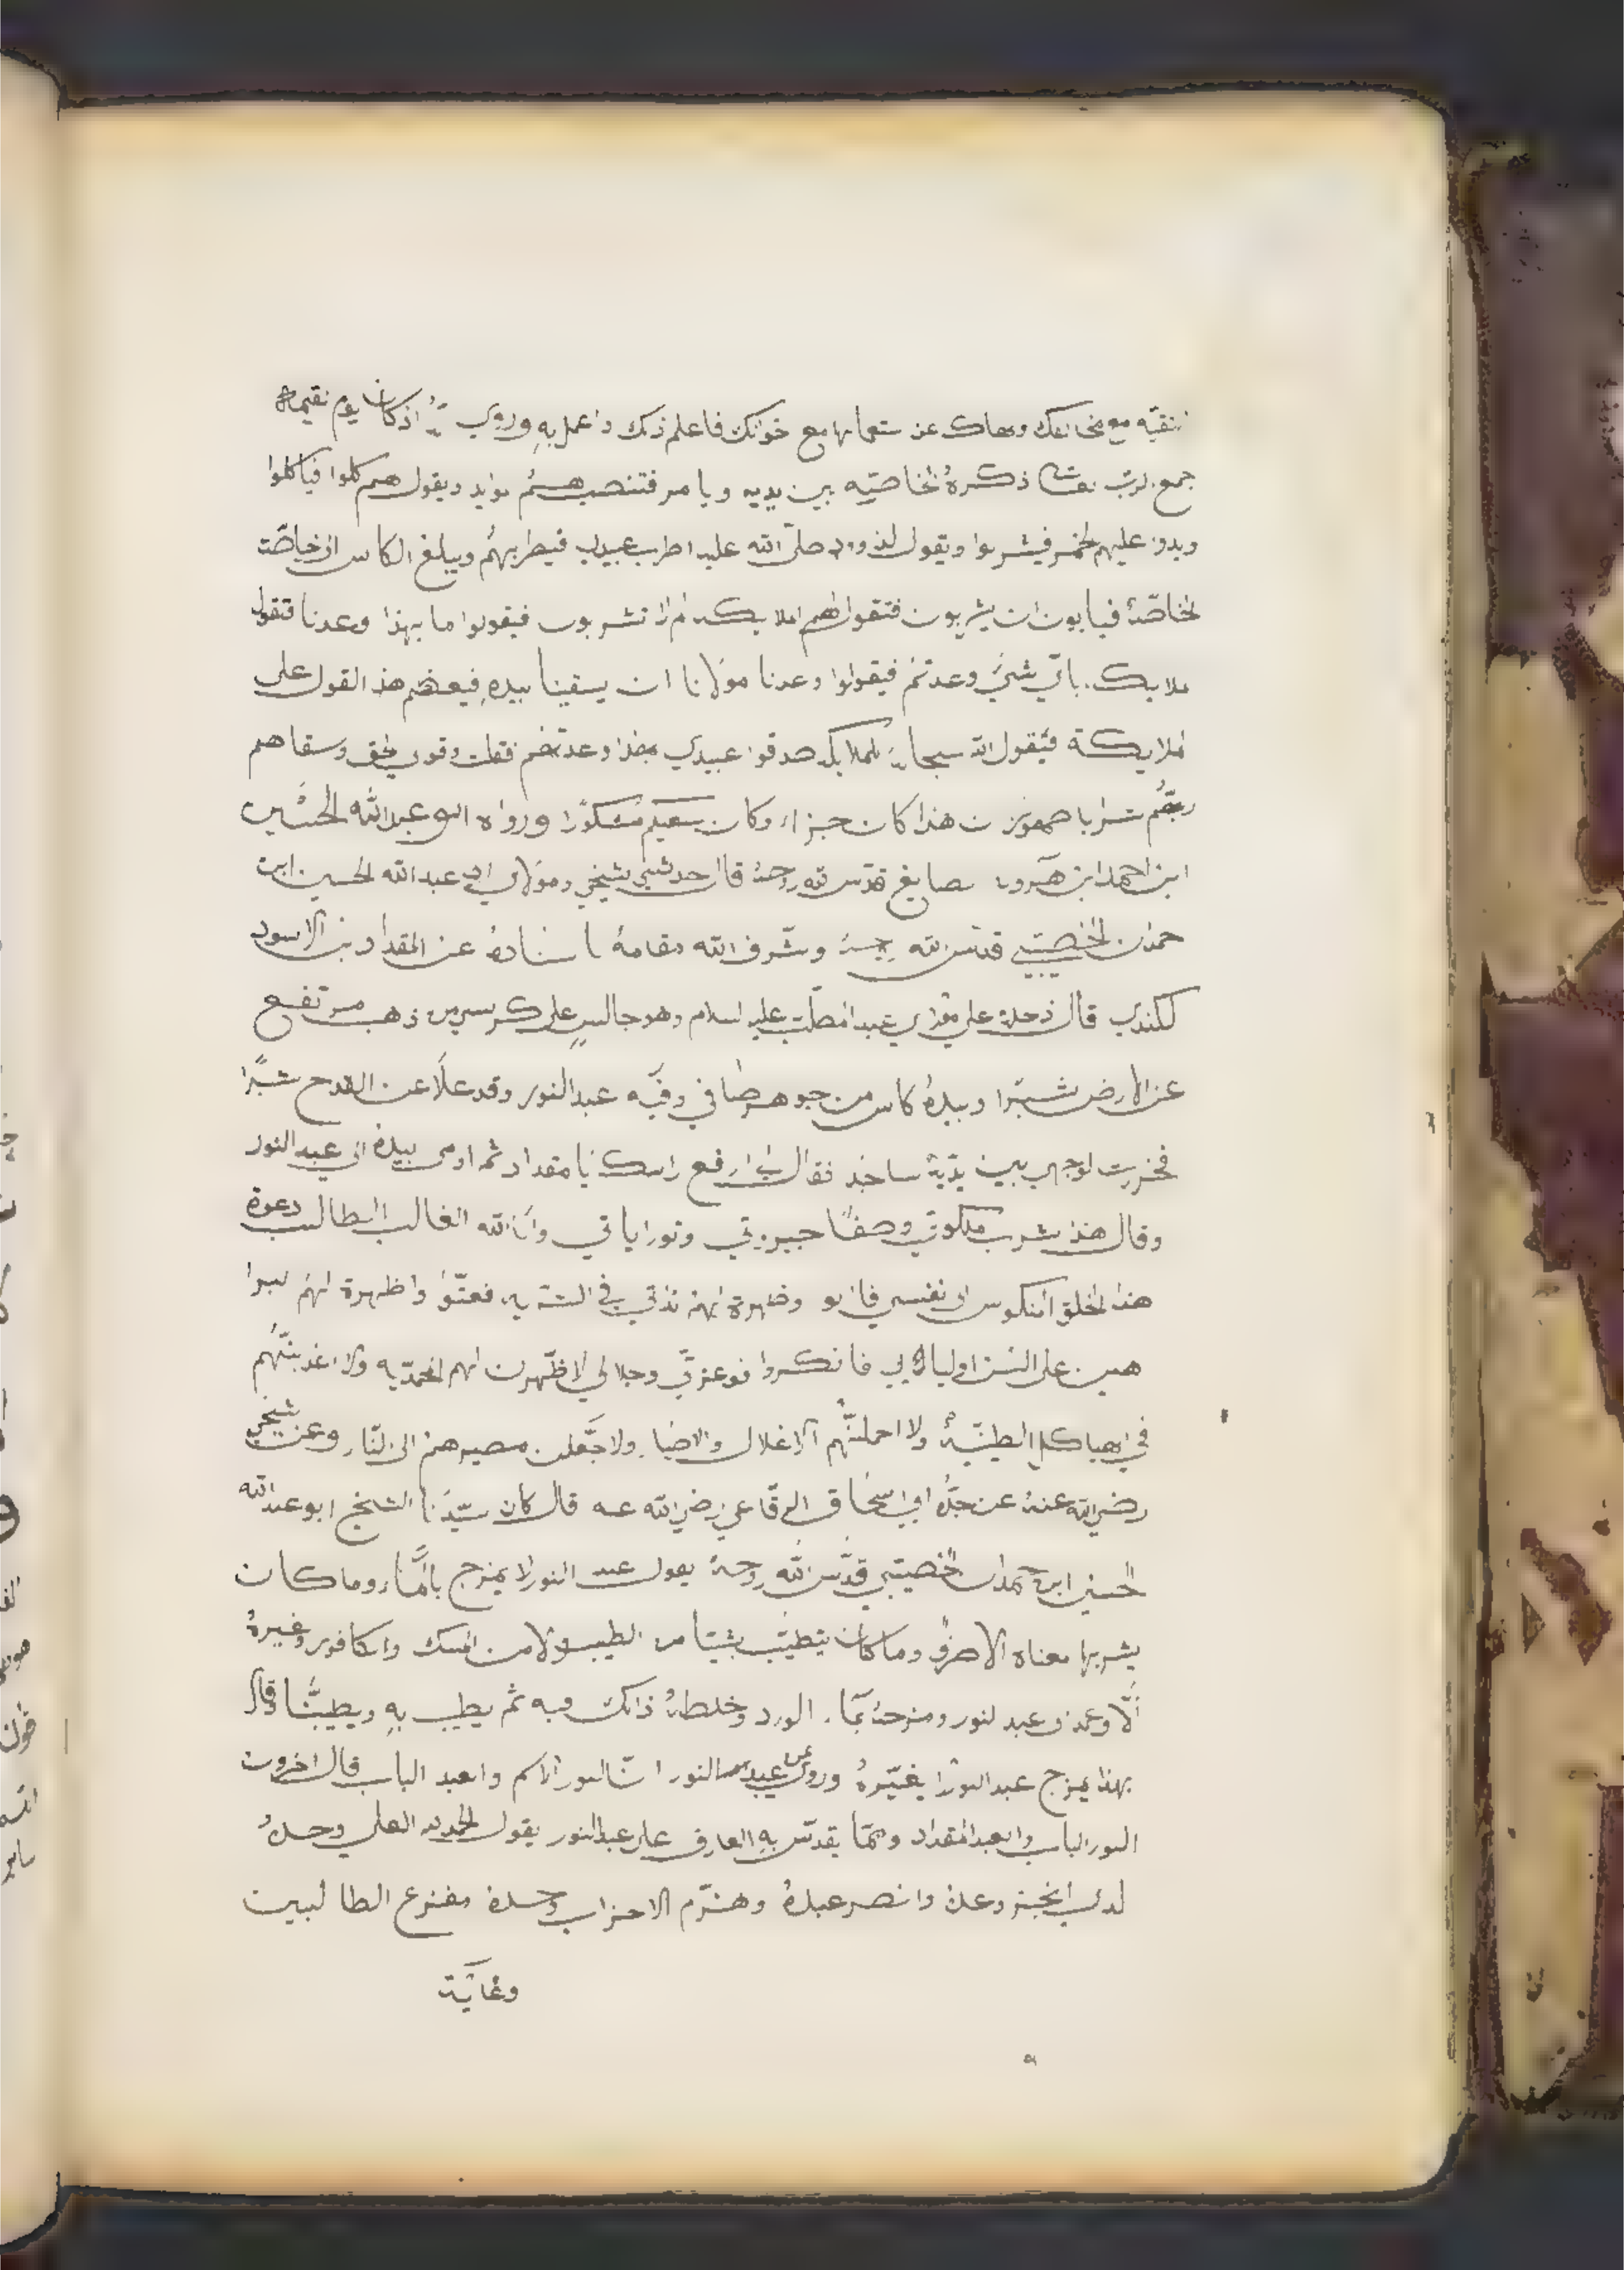 التقيه مع مخالفك ونهاك عن ستعمالها مع خوانك فاعلم ذلك واعمل به وروي انه اذ كان يوم القيمه
جمع الرب تعالى ذكره الخاصيه بين يديه ويامر فتنصب لهم موايد ويقول لهم كلوا فياكلوا
ويدور عليهم الخمر فيشربوا ويقول لداوود صلى الله عليه اطرب عبيدي فيطربهم ويبلغ الكاس الى خاصة
الخاصة فيابون ان يشربون فتقول لهم الملايكه لم لا تشربون فيقولوا ما بهذا وعدنا فتقول
الملايكه باي شي وعدتم فيقولوا وعدنا مولانا ان يسقينا بيده فيعظم هذا القول على
الملايكة فيقول الله سبحانه للملايكه صدقوا عبيدي بهذا وعدتهم فقلت وقولي الحق وسقاهم
ربهم شرابا طهورا ان هذا كان جزاء وكان سعيكم مشكورا ورواه ابو عبدالله الحسين
ابن احمد ابن هرون الصايغ قدس الله روحه قال حدثني شيخي ومولاي ابي عبدالله الحسين ابن
حمدان الخصيبي قدس الله روحه وشرف الله مقامه باسناده عن المقداد بن الاسود
الكندي قال دخلت على مولاي عبد المطلب عليه السلام وهو جالس على كرسي من ذهب مرتفع
عن الارض شبرا وبيده كاس من جوهر صافي وفيه عبدالنور وقد علا عن القدح شبرا
فخررت لوجهي بين يديه ساجد فقال لي ارفع راسك يا مقداد ثم اومى بيده الى عبد النور
وقال هذا شرب ملكوتي وصفا جبروتي ونور اياتي وانا الله الغالب الطالب دعوة
هذا الخلق المنكوس الى نفسي فابو وظهرة لهم بذاتي في الستريه فعتوا واظهرة لهم البرا
هين على السن اوليايي فانكروا فوعزتي وجلالي لاظهرن لهم المحمديه ولاعذبنهم
في الهياكل الطينية ولا احملنهم الاغلال والاصار ولاجعلن مصيرهم الى النار وعن شيخي
رضي الله عنه عن جده ابي اسحاق الرقاعي رضي الله عنه قال كان سيدنا الشيخ ابو عبدالله
الحسين ابن حمدان الخصيبي قدس الله روحه يقول عبد النور لا يمزج بالماء وما كان
يشربها معناه الا صرف وما كان يتطيب بشيئا من الطيب ولا من المسك والكافور وغيره
الا وعمد الى عبد النور ومزجه بماء الورد وخلطه ذالك فيه ثم يطيب به ويطيبنا وقال
بهذا يمزج عبد النور لا بغيره وروي عن عبد النور ان النور الاسم والعبد الباب وقال اخرون
النور الباب والعبد المقداد ومما يقدس به العارف على عبد النور يقول الحمد لله العلي وحده
الذي انجز وعده وانصر عبده وهزم الاحزاب وحده مفزع الطالبين
وغاية